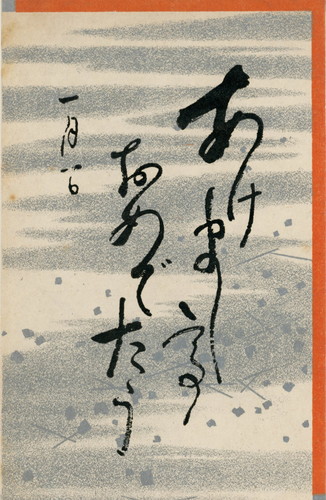 あけまして
おめでたう
一月一日